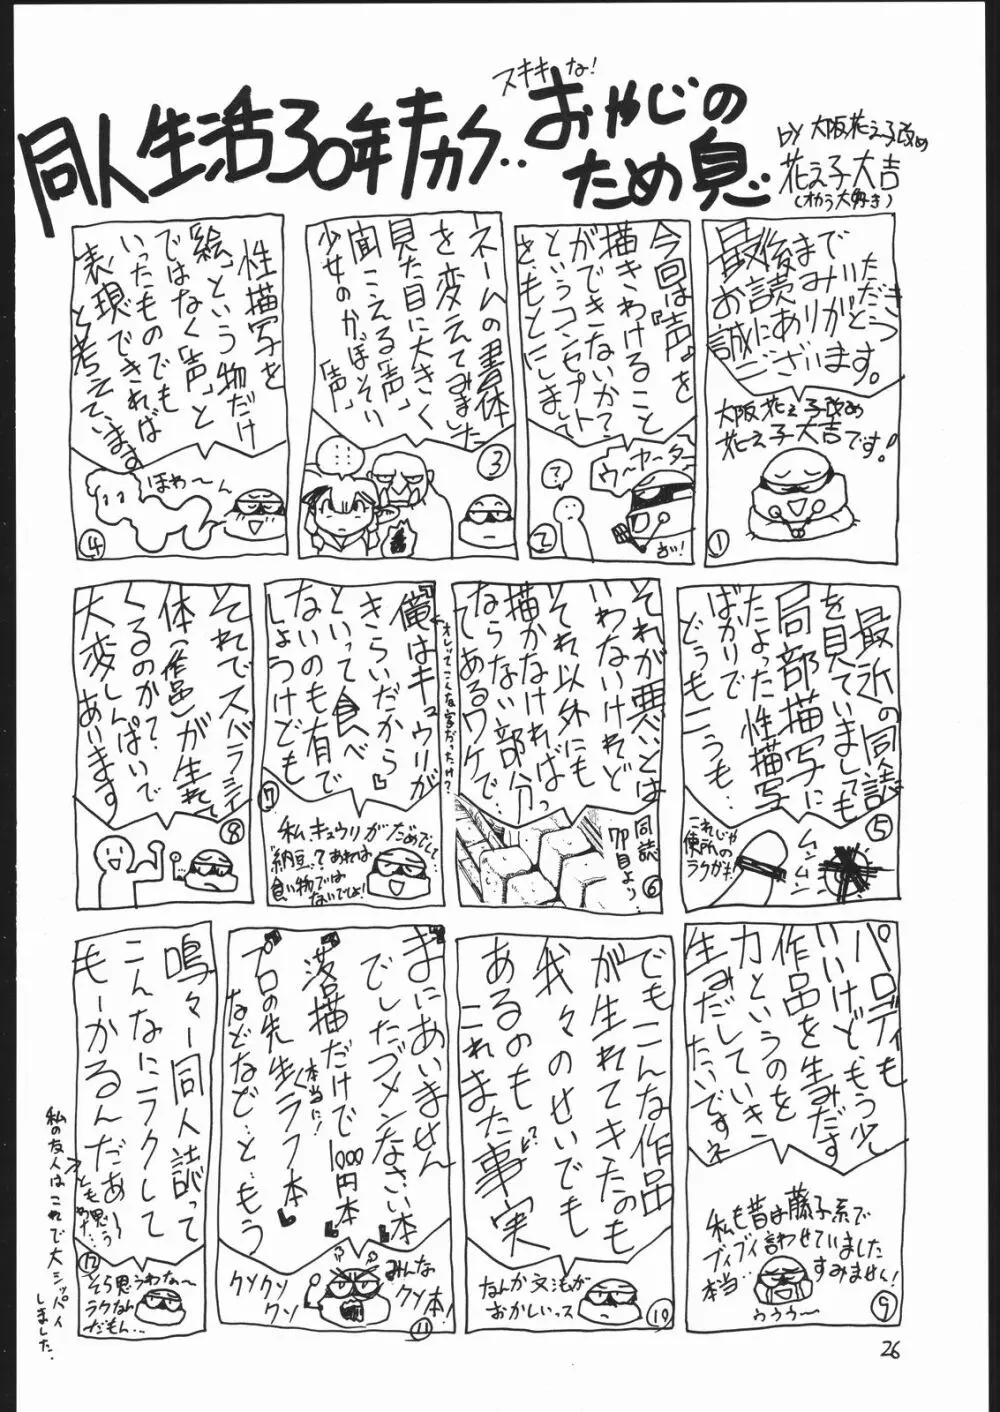 スキキな!
同人生活30年チカク‥おやじの
ため息
by 大阪花え子改め
花え子大吉
(オカラ大好き)
最後までいただき
お読みがとう
誠にありがとう
ございます。
大阪花え子改め
花え子大吉です!
①
今回は「声」を
描きわけること
ができないかて…
というコンセプト
をもとにしまして
ウ〜ヤ〜タ〜
?
②
ネームの書体
を変えてみました
見た目に大きく
聞こえる「声」
少女のかぼそい
「声」
③
性描写を
「絵」という物だけ
ではなく「声」と
いったものでも
表現できれば
と考えています
ほわ〜ん
④
最近の同誌
を見ていましても
局部描写に
たよった性描写
ばかりで
どうもこうも…
これじゃ
便所の
ラクガキ!
ムンムン
⑤
それが悪いとは
いわないけれど
それ以外にも
描かなければ
ならない部分っ
てあるワケで…
同誌
7P目より…
⑥
「俺はキュウリが
きらいだから」
といって食べ
ないのも有で
しょうけども
オレってこんな字だったけ?
私、キュウリがだめでして…
「納豆」ってあれは
食い物では
ないでしょ!
⑦
それでスバラシイ
体(作品)が生れて
くるのかて、
大変しんぱいで
あります
⑧
パロディも
いいけどもう少し
作品を生みだす
力というのを
生みだしていき
たいですネ
私も昔は藤子系で
ブイブイ言わせていました
本当…すみません!
ううう〜
⑨
でもこんな作品
が生れてきたのも
我々のせいでも
あるのも
これまた事実
なんか文法が
おかしいっス
⑩
「まにあいません
でしたゴメンなさい本」
「落描だけで1000円本」
本当に!
「プロの先生くラフ本」
などなど…ともう
みんな
クソ本!
クソクソ
クソ
⑪
鳴々ー同人誌って
こんなにラクして
もーかるんだあ〜
とも思う
わけ…
⑫
そら思うわな〜
ラクなん
だもん…
私の友人はこれで大シッパイ
しました.
26